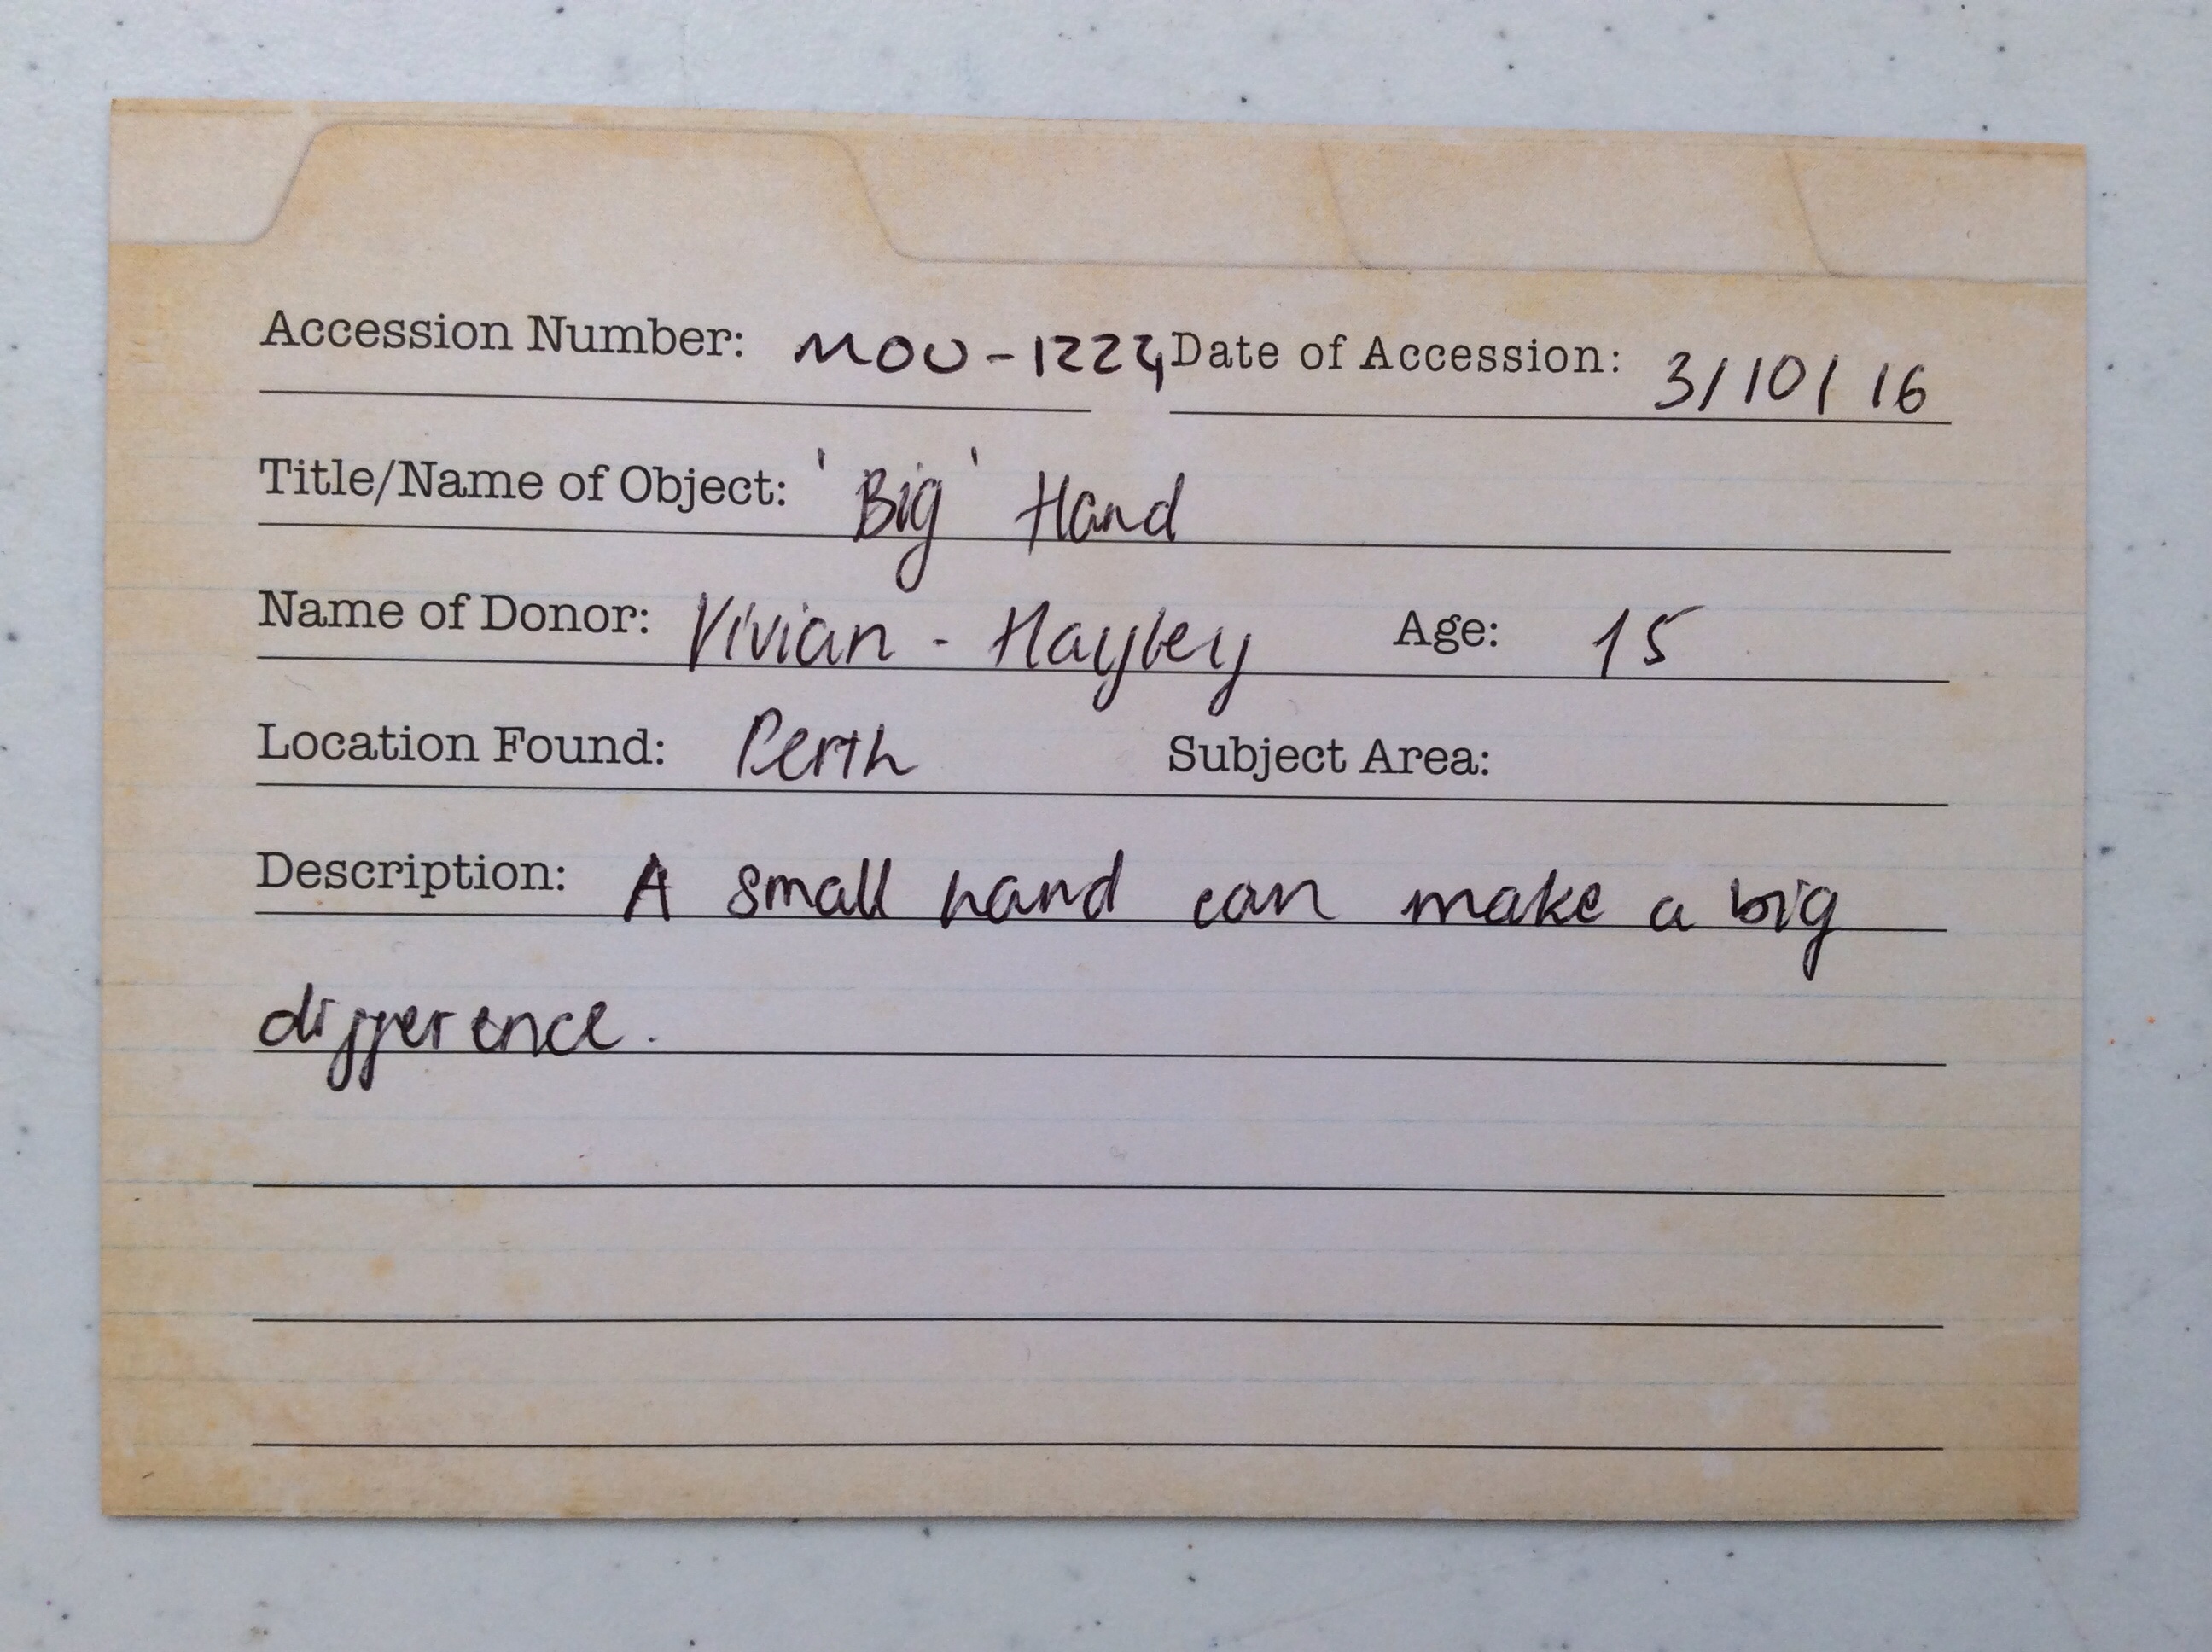 Accession Number: MOU-1224 Date of Accession: 3/10/16
Title/Name of Object: 'Big' Hand
Name of Donor: Vivian - Hayley Age: 15
Location Found: Perth Subject Area:
Description: A small hand can make a big
difference.